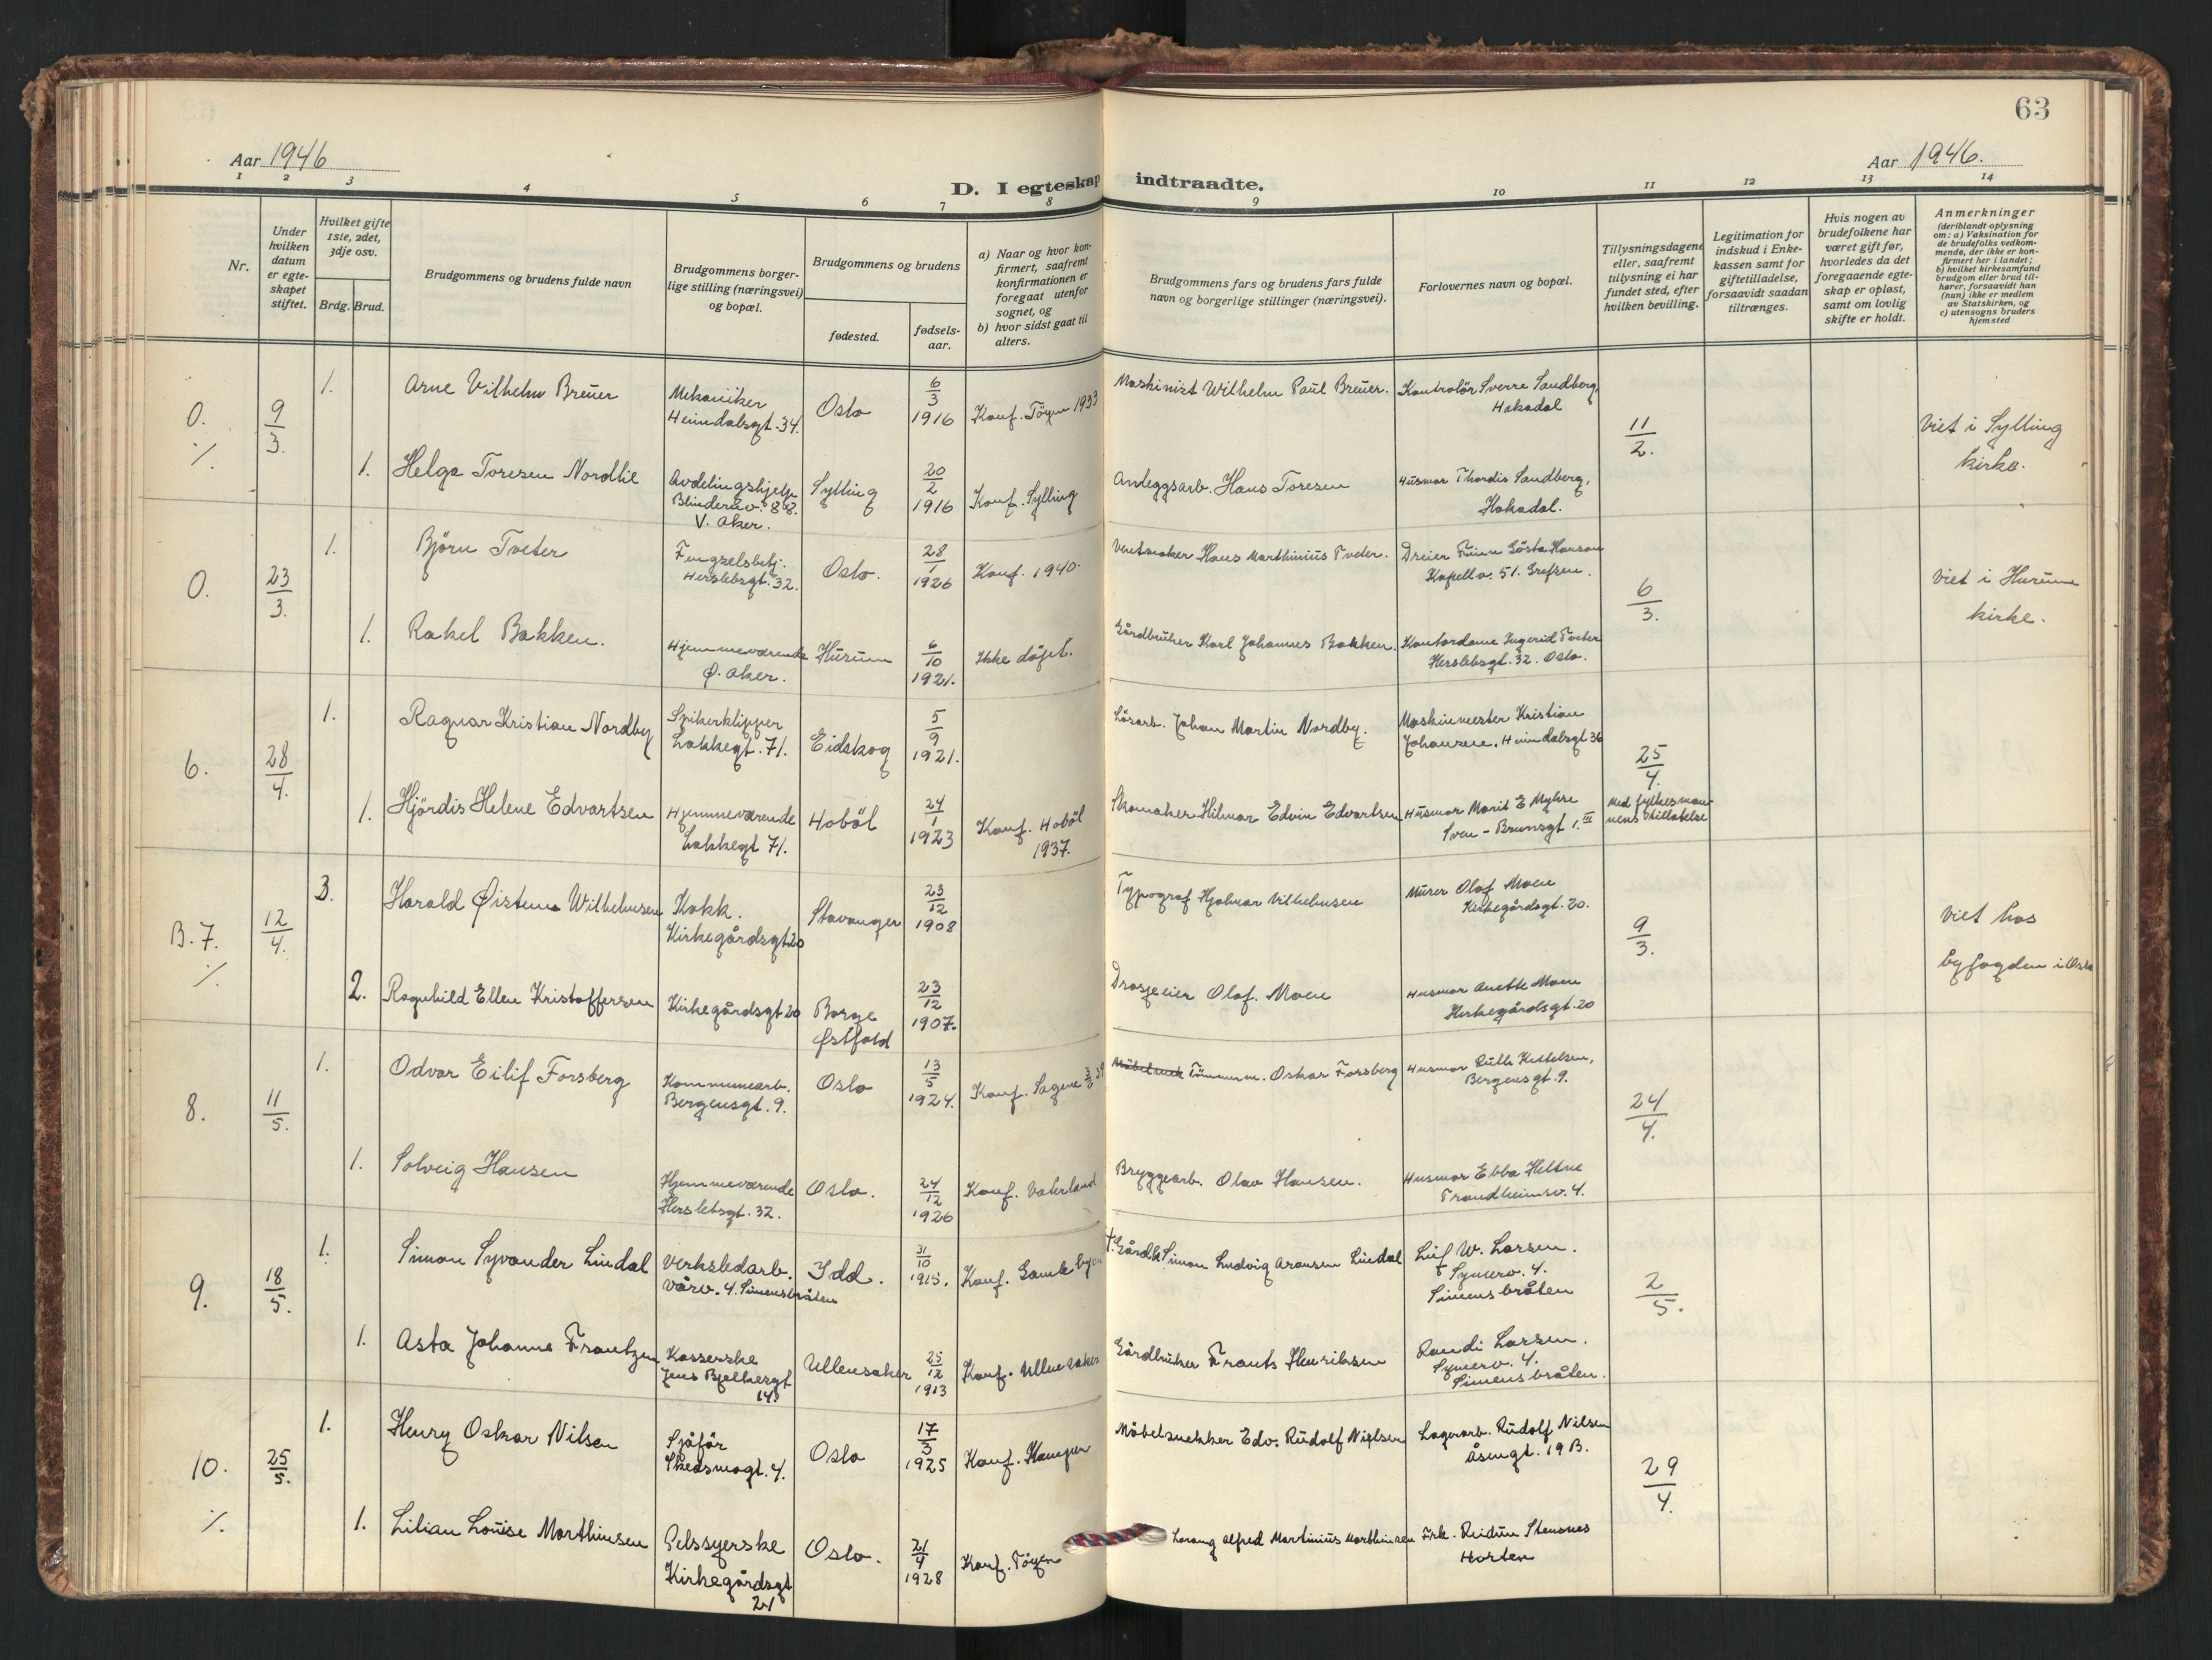 63
Aar 1946
Aar 1946.
D. I egteskap indtraadte.
1 2 3 4 5 6 7 8 9 10 11 12 13 14
Nr.
Under hvilken datum er egteskapet stiftet.
Hvilket gifte 1ste, 2det, 3dje osv.
Brdg. Brud.
Brudgommens og brudens fulde navn
Brudgommens borgerlige stilling (næringsvei) og bopæl.
Brudgommens og brudens
fødested.
fødselsaar.
a) Naar og hvor konfirmert, saafremt konfirmationen er foregaat utenfor sognet, og
b) hvor sidst gaat til alters.
Brudgommens fars og brudens fars fulde navn og borgerlige stillinger (næringsvei).
Forlovernes navn og bopæl.
Tillysningsdagene eller, saafremt tillysning ei har fundet sted, efter hvilken bevilling.
Legitimation for indskud i Enkekassen samt for giftetilladelse, forsaavidt saadan tiltrænges.
Hvis nogen av brudefolkene har været gift før, hvorledes da det foregaaende egteskap er opløst, samt om lovlig skifte er holdt.
Anmerkninger (deriblandt oplysning om: a) Vaksination for de brudefolks vedkommende, der ikke er konfirmert her i landet; b) hvilket kirkesamfund brudgom eller brud tilhører, forsaavidt han (hun) ikke er medlem av Statskirken, og c) utensogns bruders hjemsted
0. 9/3. 1. Arne Vilhelm Breuer Mekaniker Heimdalsgt. 34. Oslo 6/3 1916 Konf. Töyen 1933 Maskinist Wilhelm Paul Breuer. Kontrolör Sverre Sandberg, Hakadal 11/2. Viet i Sylling kirke.
1. Helga Toresen Nordlie Avdelingshjelp Blindernv. 88. V. Aker. Sylling 20/2 1916 Konf. Sylling Anleggsarb. Hans Toresen Husmor Thordis Sandberg, Hakadal.
0. 23/3. 1. Björn Tveter Fengselsbetj. Herslebsgt. 32. Oslo. 28/1 1926 Konf. 1940. Hans Marthinius Tveter. Dreier Finn Gösta Hanson Kapellv. 51. Grefsen. 6/3. Viet i Hurum kirke.
1. Rakel Bakken. Hjemmeværende Ø. Aker. Hurum 6/10 1921. Ikke döpt. Gårdbruker Karl Johannes Bakken. Kontordame Ingerid Tveter Herslebsgt. 32. Oslo.
6. 28/4. 1. Ragnar Kristian Nordby Spikerklipper Lakkegt. 71. Eidskog 5/9 1921. Lösarb. Johan Martin Nordby. Maskinmester Kristian Johansen, Heimdalsgt 36 25/4. Med fylkesmannens tillatelse
1. Hjördis Helene Edvartsen Hjemmeværende Lakkegt 71. Hoböl 24/1 1923 Konf. Hoböl 1937. Skomaker Hilmar Edvin Edvartsen Husmor Marit E Myhre Sven-Brunsgt 1. III
B. 7. 12/4. 3. Harald Øistein Wilhelmsen Kokk. Kirkegårdsgt 20 Stavanger 23/12 1908 Typograf Hjalmar Vilhelmsen Murer Olaf Moen Kirkegårdsgt. 20. 9/3. Viet hos byfogden i Oslo
2. Ragnhild Ellen Kristoffersen Kirkegårdsgt 20 Borge Østfold 23/12 1907. Drosjeeier Olaf. Moen Husmor Anette Moen Kirkegårdsgt. 20
8. 11/5. 1. Odvar Eilif Forsberg Kommunearb. Bergensgt. 9. Oslo 13/5 1924. Konf. Sagene Tömmerm. Oskar Forsberg Husmor Gulli Kittelsen, Bergensgt. 9. 24/4.
1. Solveig Hansen Hjemmeværende Herslebsgt. 32. Oslo. 24/12 1926 Konf. Vaterland Bryggearb. Olav Hansen. Husmor Ebba Heltne Trondheimsv. 4.
9. 18/5. 1. Simon Syvander Lindal Verkstedarb. Vårv. 4. Simensbråten Idd. 31/10 1915. Konf. Gamlebyen Gårdb. Simon Ludvig Aronsen Lindal Leif W. Larsen. Synerv. 4. Simensbråten 2/5.
1. Asta Johanne Frantzen Kasserske Jens Bjelkesgt 14 Ullensaker 25/12 1913 Konf. Ullensaker Gårdbruker Frants Henriksen Randi Larsen. Synerv. 4. Simensbråten.
10. 25/5. 1. Henry Oskar Nilsen Sjåför Skedsmogt. 4. Oslo 17/3 1925 Konf. Kampen Möbelsnekker Edv. Rudolf Nielsen Lagerarb. Rudolf Nilsen Åsengt. 19 B. 29/4.
1. Lilian Louise Marthinsen Pelssyerske Kirkegårdsgt 24 Oslo. 21/4 1928 Konf. Töyen Alfred Martinius Marthinsen Frk. Reidun Stensnes Horten